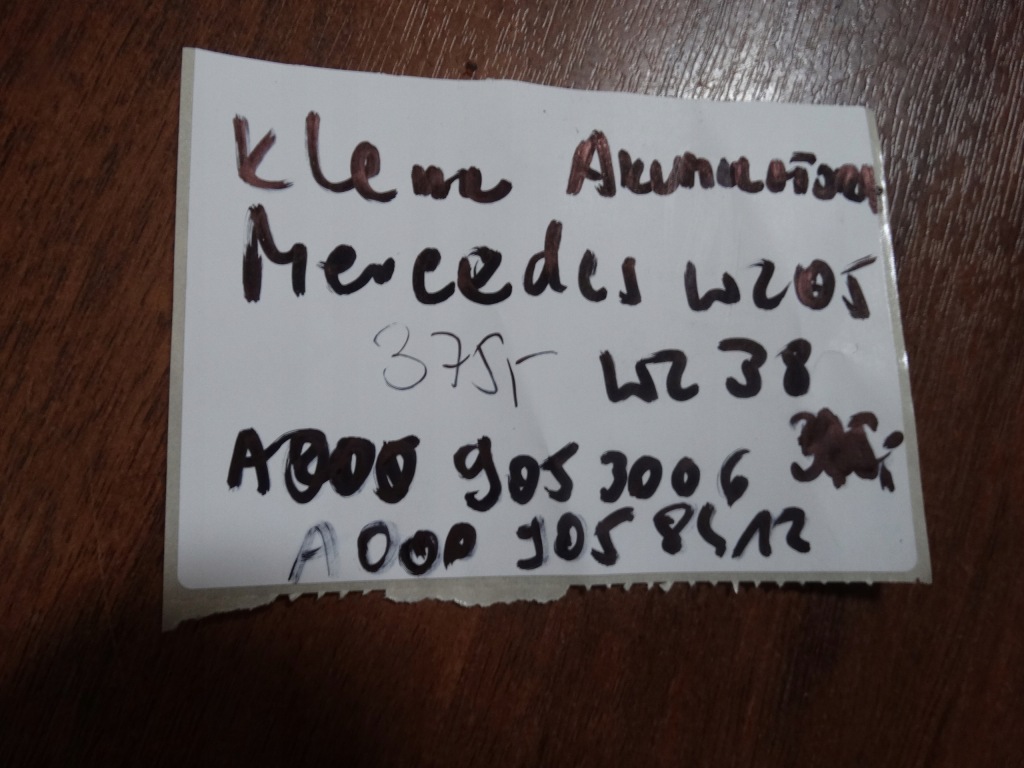 Klema Akumulatora
Mercedes W205
375,- W238
A000 905 3006
A000 905 8412